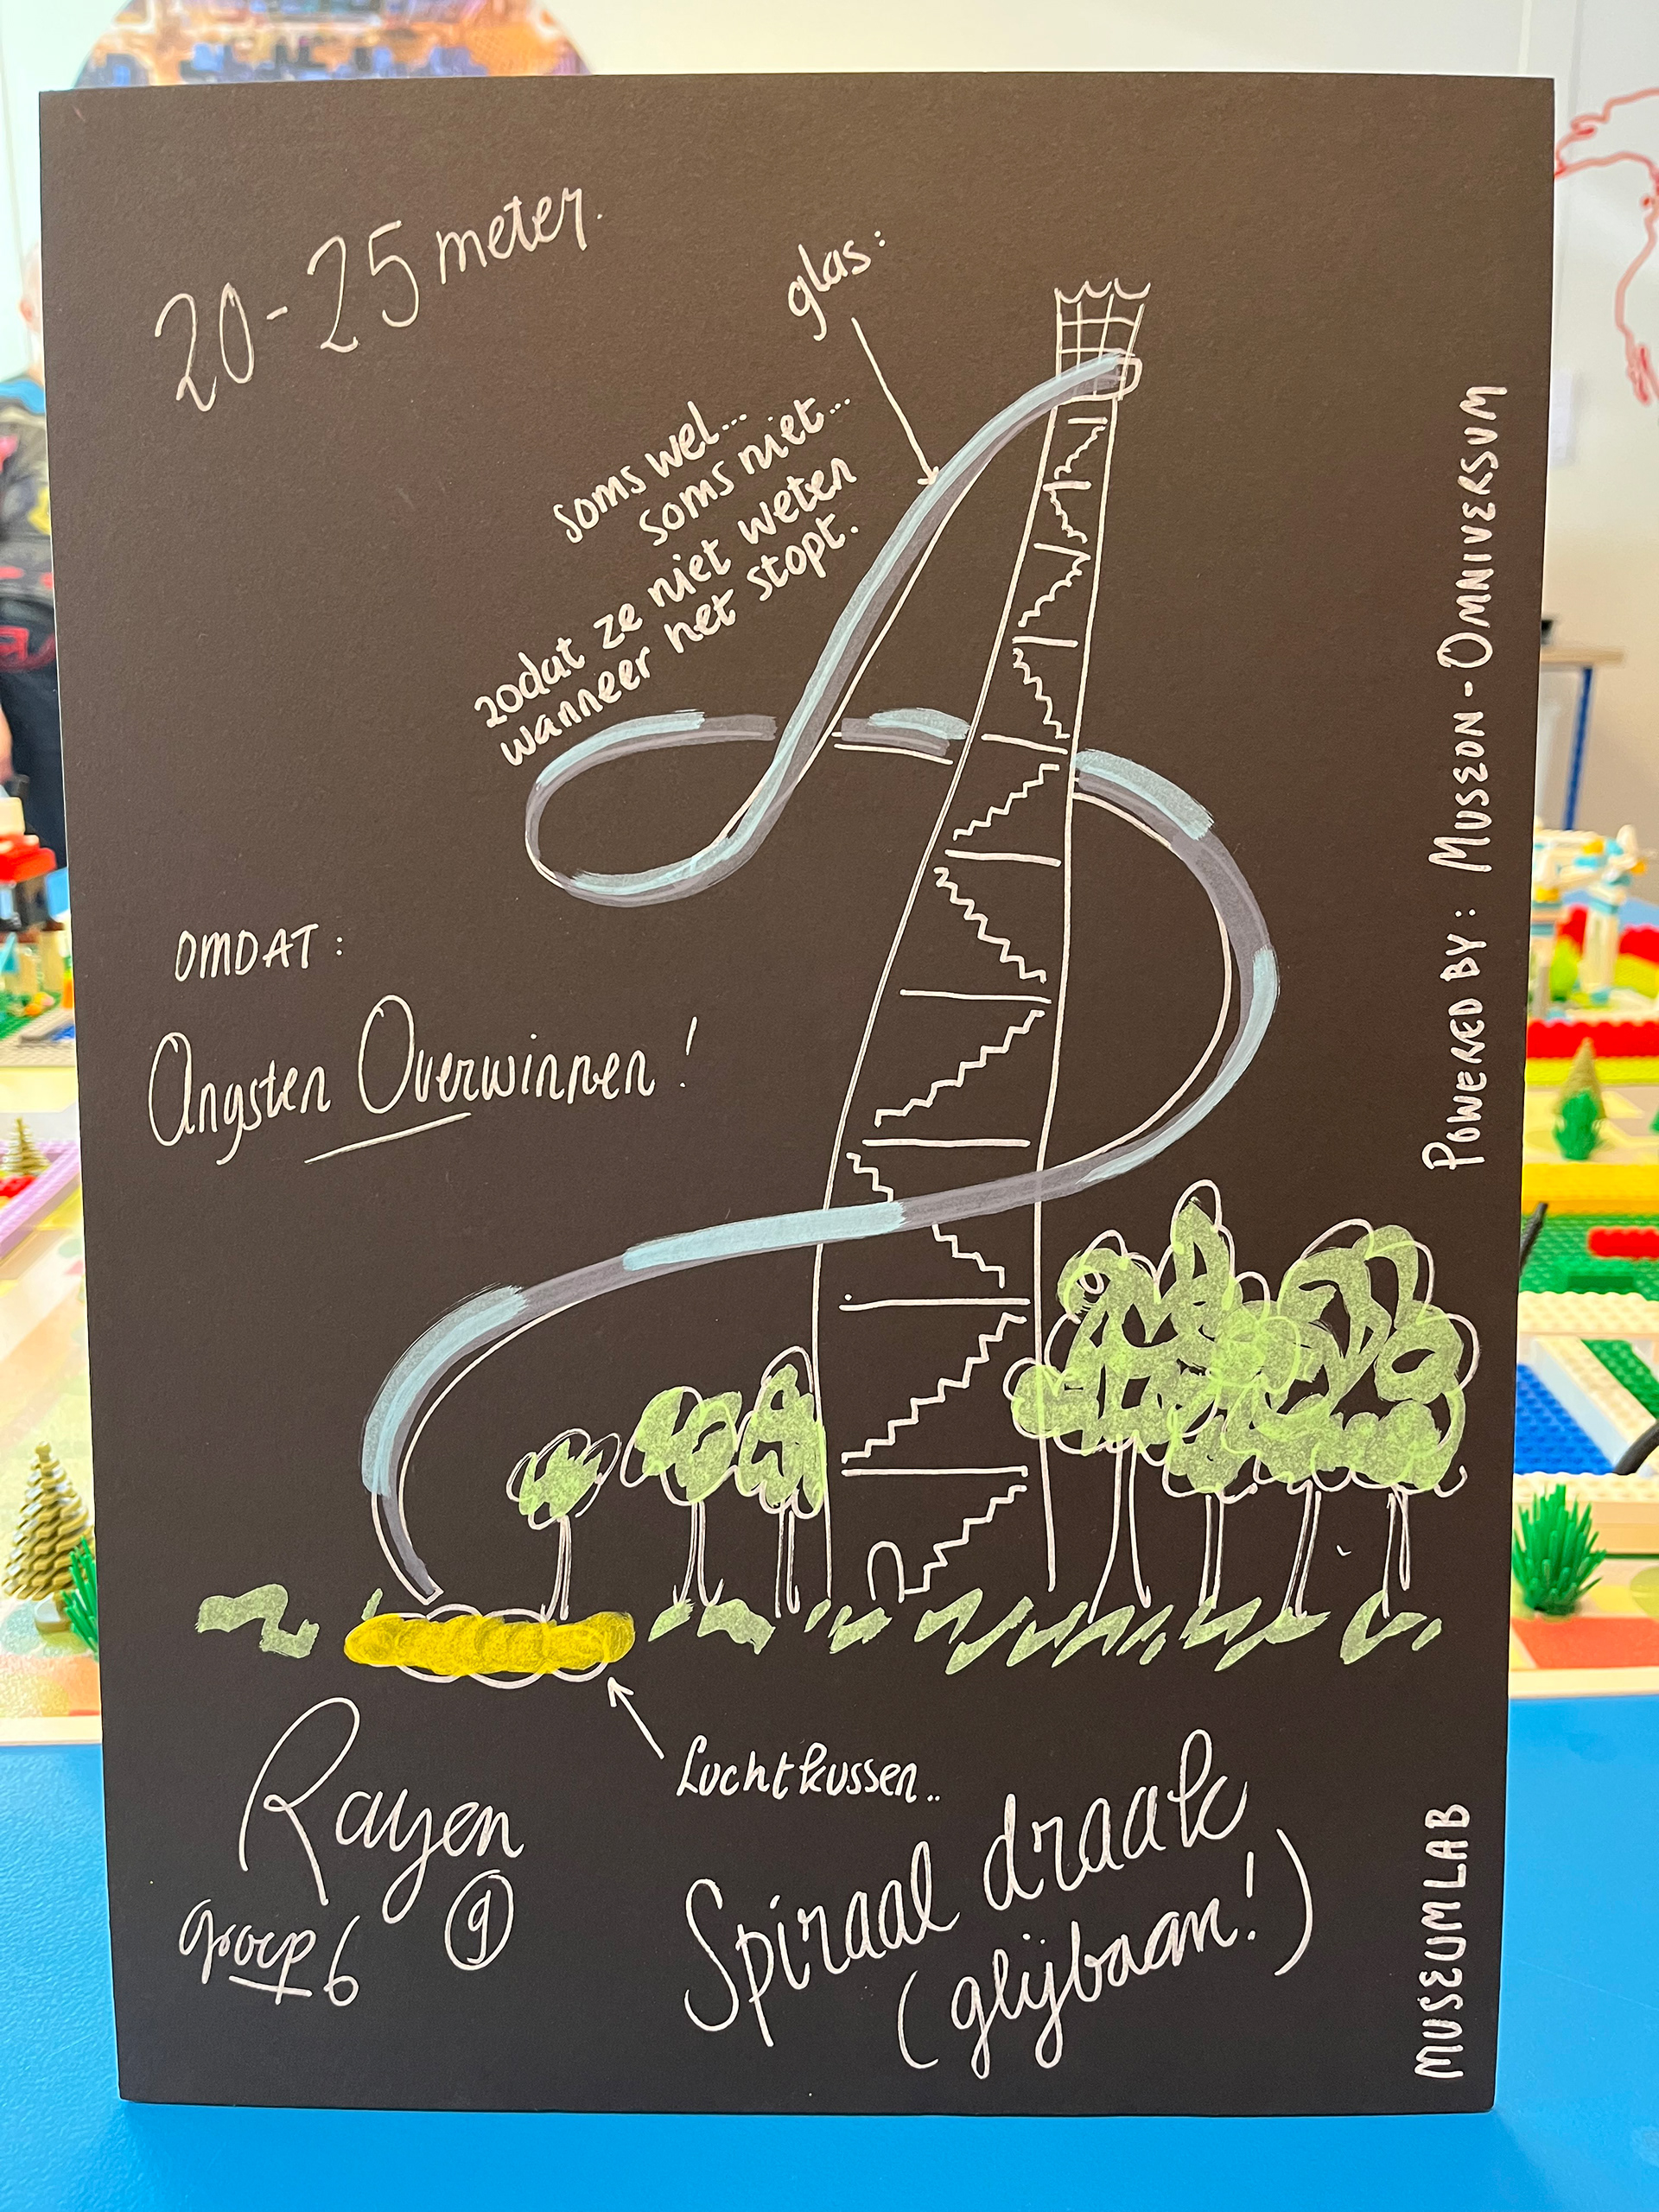 20-25 meter.
glas:
soms wel...
soms niet...
zodat ze niet weten
wanneer het stopt.
OMDAT:
Angsten Overwinnen!
Luchtkussen..
Rayen
groep 6
9
Spiraal draak
(glijbaan!)
POWERED BY: MUSEON-OMNIVERSUM
MUSEUMLAB